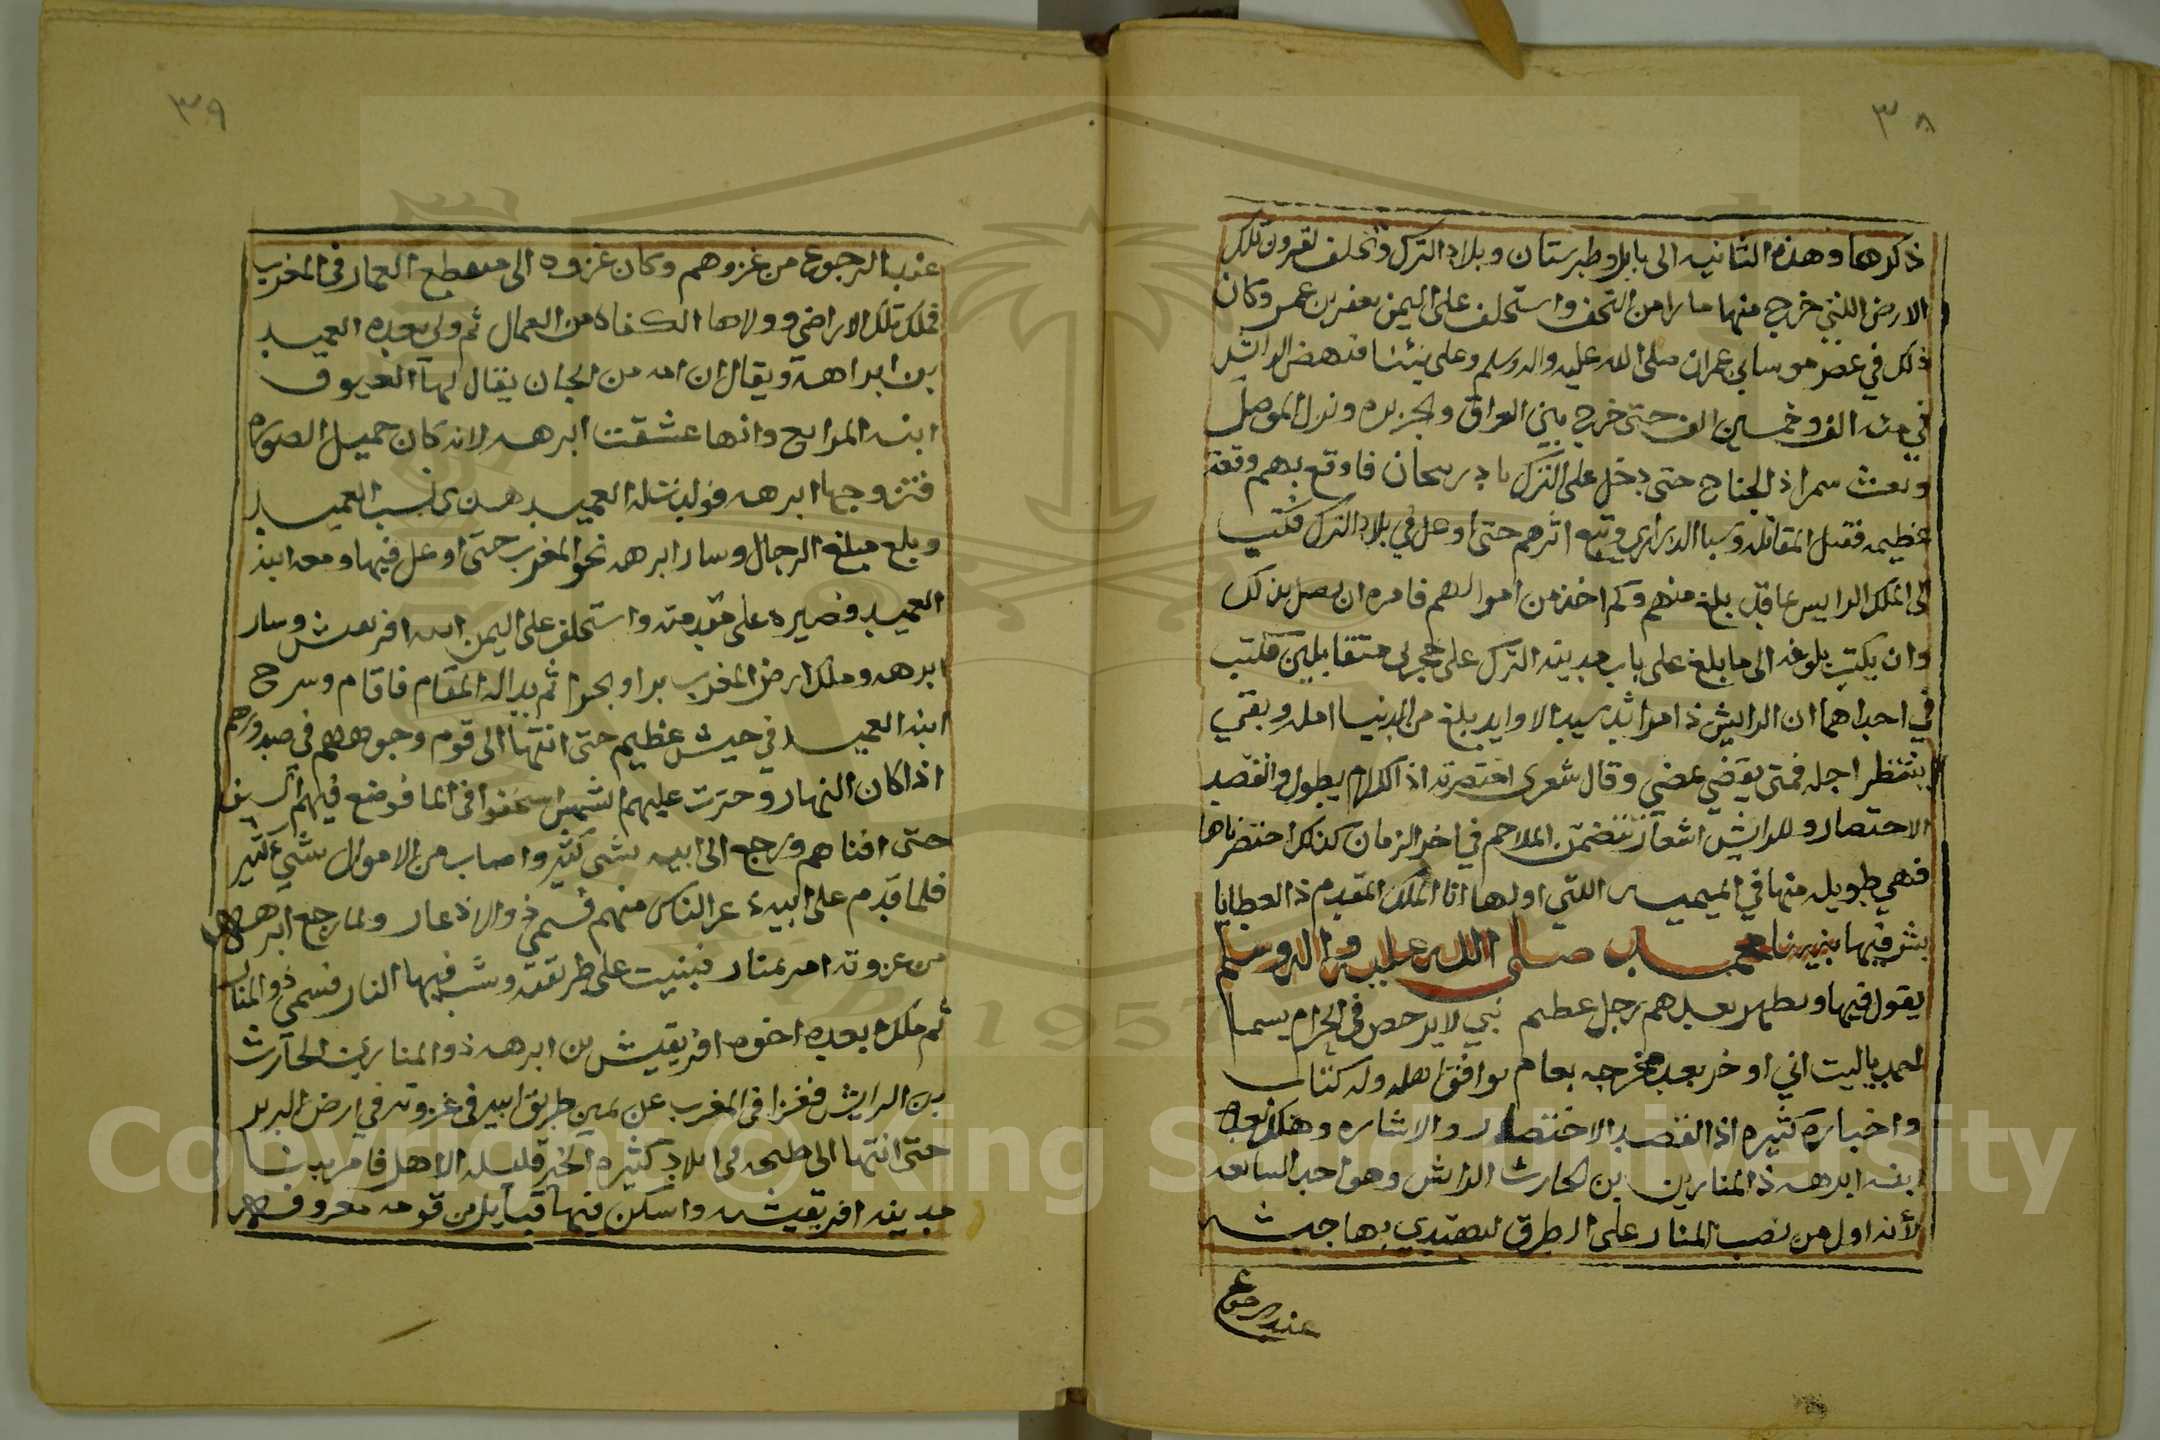 ٣٨
ذكرها وهذه الثانيه الى بابل وطبرستان وبلاد الترك
الارض اللتي خرج منها ما را من التحف واستخلف على اليمن يعفر بن عمر وكان
ذلك في عصر موسا بن عمران صلى الله عليه واله وسلم وعلى نبينا فنهض الرايش
في مئه الف وخمسين الف حتى خرج بين العراق والجزيره ونزل الموصل
وبعث سمرا ذا الجناح حتى دخل على الترك فاوقع بهم وقعة
عظيمه فقتل المقاتله وسبا الذراري وتبع اثرهم حتى اوغل في بلاد الترك فكتب
الى الملك الرايس بما قد بلغ منهم وكم اخذ من اموالهم فامره ان يصل بذلك
وان يكتب بلوغه الى ما بلغ على باب مدينه الترك على حجرين متقابلين فكتب
في احداهما ان الرايش ذا مراثد سيد الاوايد بلغ من الدنيا امله وبقي
ينتظر اجله فمتى يقضي يمضي وقال شعرى اختصرته اذ الكلام يطول والقصد
الاختصار وللرايش اشعار تتضمن الملاحم في اخر الزمان كذلك اختصرناها
فهي طويله منها في الميميه اللتي اولها انا الملك المقدم ذا العطايا
بشر فيها بنبينا محمد صلى الله عليه واله وسلم
يقول فيها ويظهر بعدهم رجل عظيم نبي لا يرخص في الحرام يسما
احمد ياليت اني اوخر بعد مخرجه بعام يوافق اهله وله كتاب
واخباره كثيره اذ القصد الاختصار والاشاره وهلك بعده
ابنه ابرهه ذا المنارين بن الحارث الرايش وهو احد السابعه
لأنه اول من نصب المنار على الطرق ليهتدي بها جيشه
عند الرجوع
٣٩
عند الرجوع من غزوهم وكان غزوه الى منقطع العمار في المغرب
فملك تلك الاراضي وولاها الكفاه من العمال ثم ولي بعده العبيد
بن ابراهة ويقال ان امه من الجان يقال لها العيوف
ابنه الرابع وانها عشقت ابرهه لانه كان جميل الصوره
فتزوجها ابرهه فولدت له العبيد
وبلغ مبلغ الرجال وسار ابرهه نحو المغرب حتى اوغل فيها ومعه ابنه
العبيد فصيره على مقدمته واستخلف على اليمن ابنه افريقيش وسار
ابرهه وملك ارض المغرب برا وبحرا ثم بدا له المقام فاقام وسرح
ابنه العبيد في جيش عظيم حتى انتها الى قوم وجوههم في صدورهم
اذا كان النهار وحرت عليهم الشمس في الما فوضع فيهم السيف
حتى افناهم ورجع الى ابيه بسبي كثير واصاب من الاموال شيء كثير
فلما قدم على ابيه ذعر الناس منهم فسمي ذو الاذعار ولما رجع ابرهه
من غزوته امر بمنار فبنيت على طريقه وشب فيها النار فسمي ذو المنار
ثم ملك بعده اخوه افريقيش بن ابرهه ذو المنارين بن الحارث
بن الرايش فغزا في المغرب عن يمين طريق ابيه في غزوته في ارض البربر
حتى انتها الى طنجه الى بلاد كثيرة الخير قليله الاهل فامر ببنا
مدينه افريقيشه واسكن فيها قبايل من قومه معروفه
Copyright © King Saud University
1957